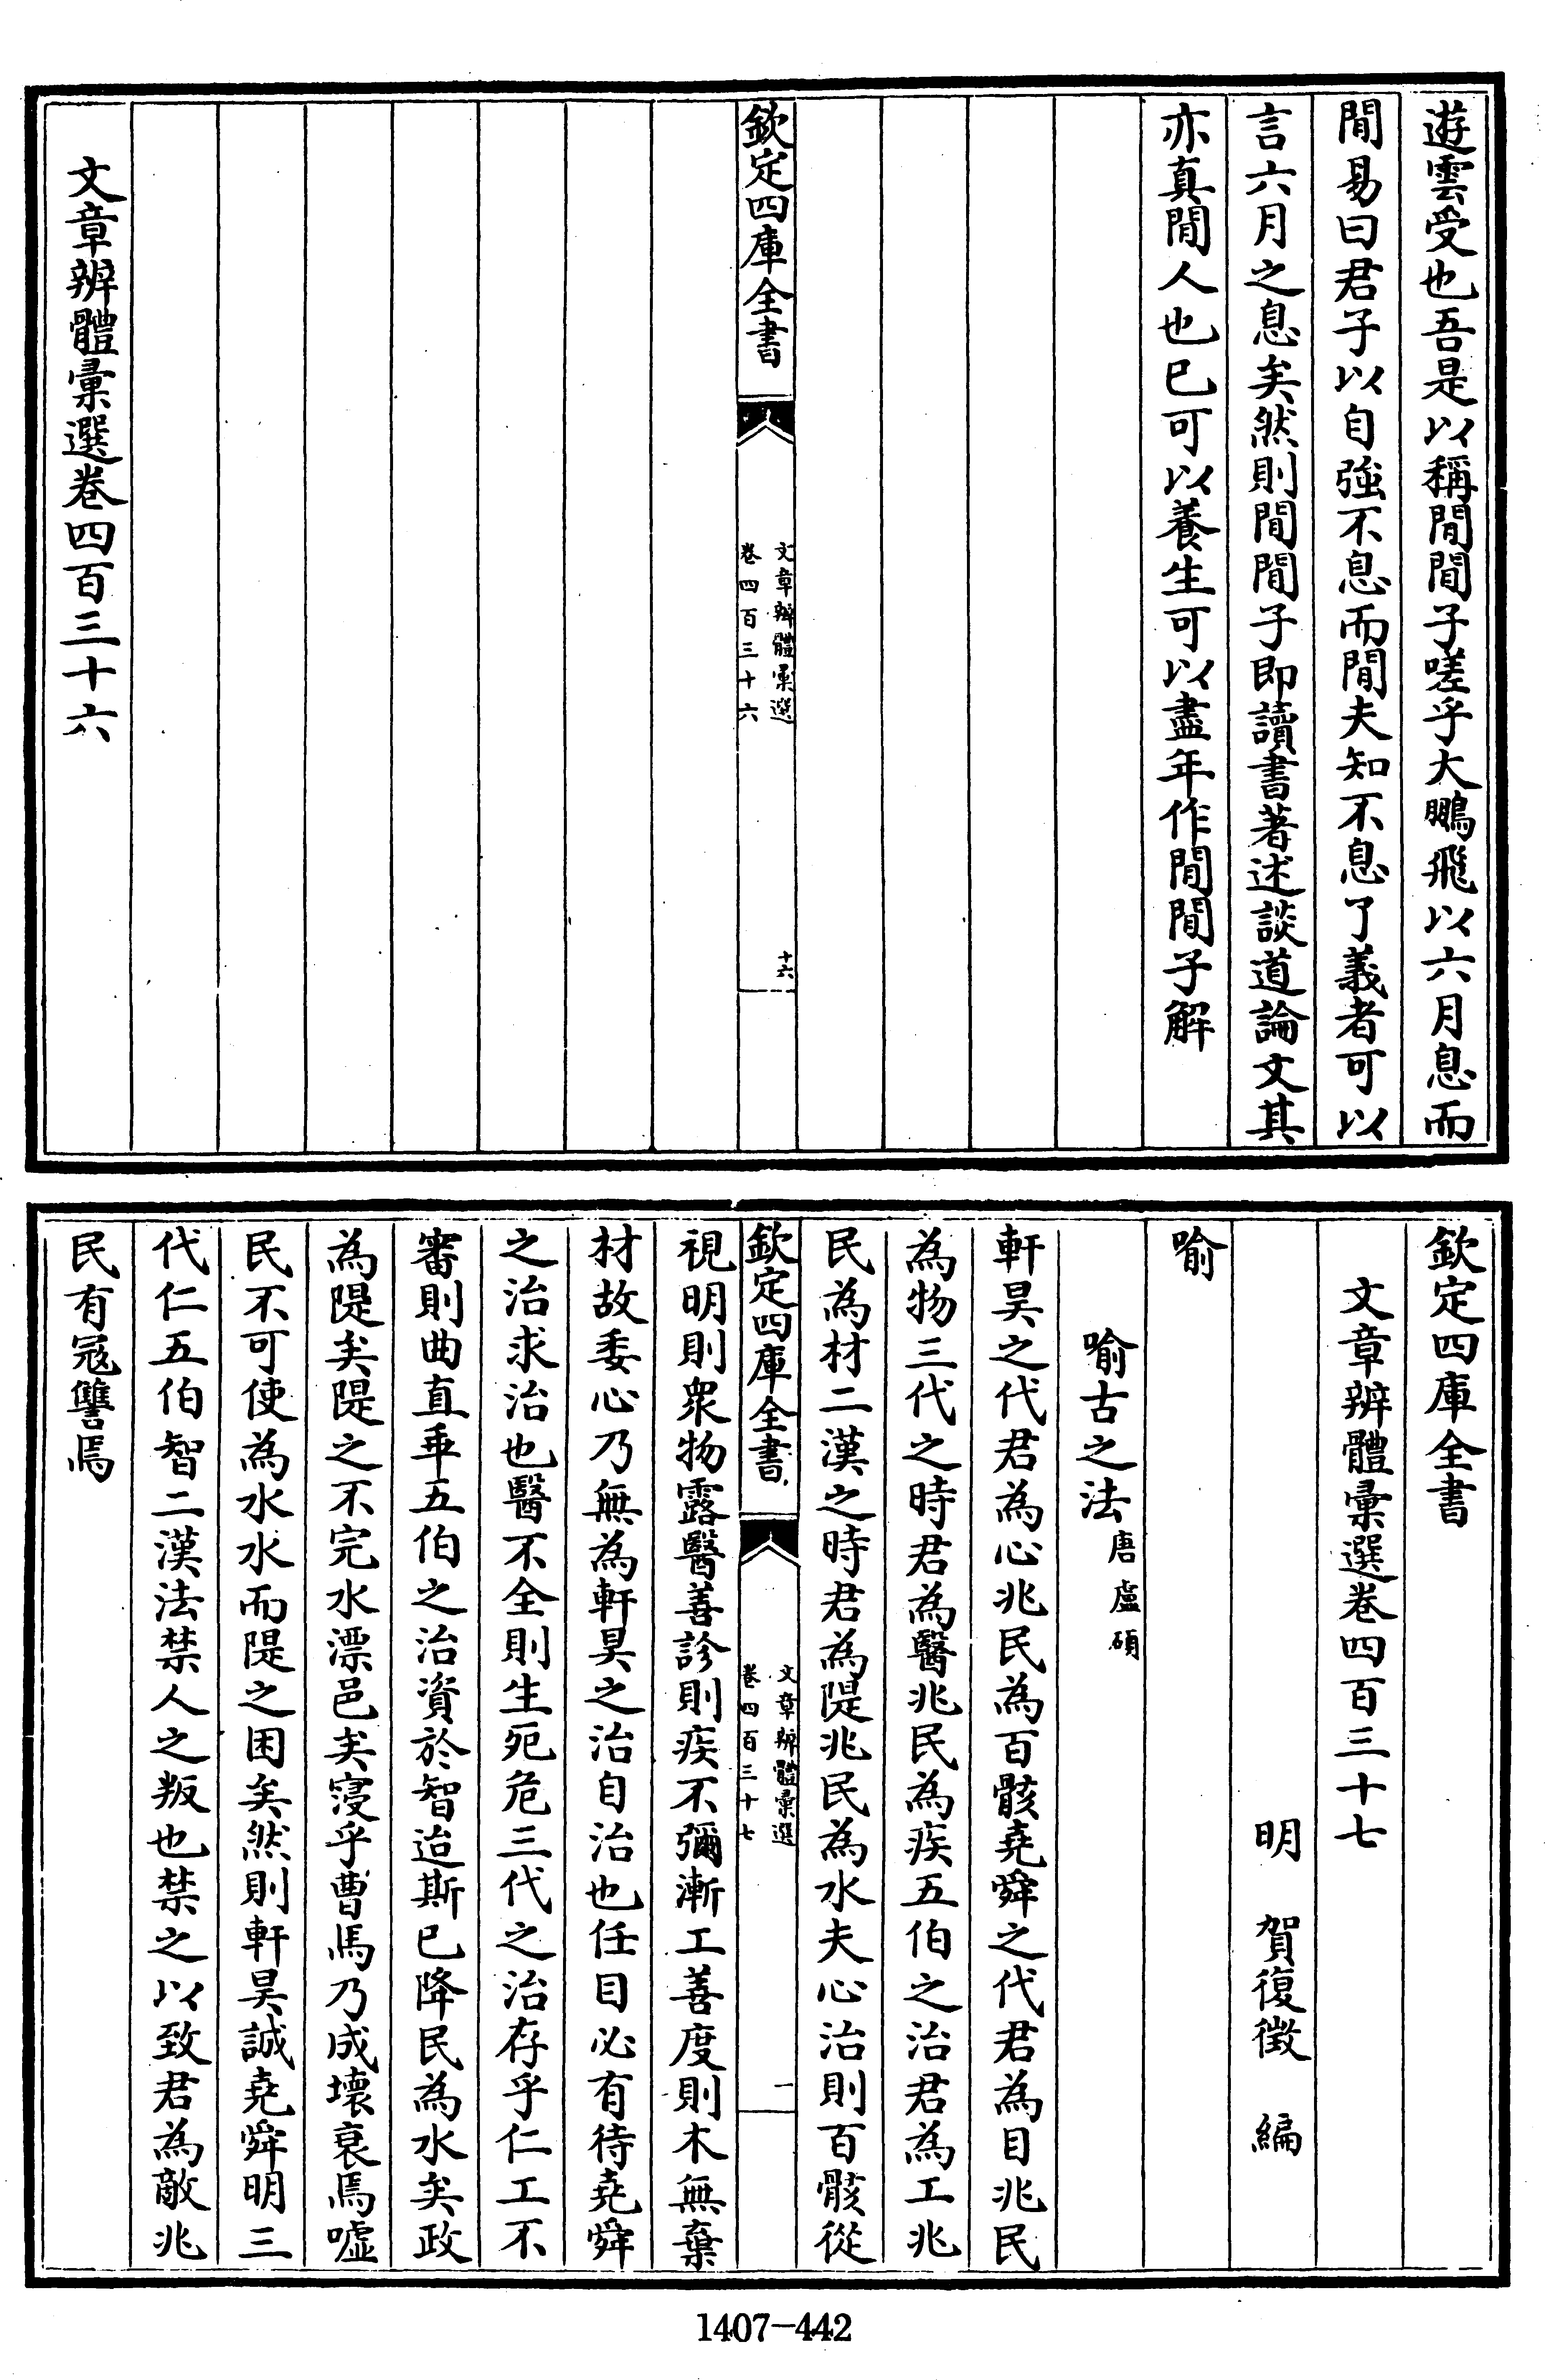 遊雲受也吾是以稱閒閒子嗟乎大鵬飛以六月息而
閒易曰君子以自強不息而閒夫知不息了義者可以
言六月之息矣然則閒閒子即讀書著述談道論文其
亦真閒人也已可以養生可以盡年作閒閒子解
欽定四庫全書
文章辨體彙選
卷四百三十六
十六
文章辨體彙選卷四百三十六
欽定四庫全書
文章辨體彙選卷四百三十七
明 賀復徵 編
喻
喻古之法唐盧碩
軒昊之代君為心兆民為百骸堯舜之代君為目兆民
為物三代之時君為醫兆民為疾五伯之治君為工兆
民為材二漢之時君為隄兆民為水夫心治則百骸從
欽定四庫全書
文章辨體彙選
卷四百三十七
一
視明則衆物露醫善診則疾不彌漸工善度則木無棄
材故委心乃無為軒昊之治自治也任目必有待堯舜
之治求治也醫不全則生死危三代之治存乎仁工不
審則曲直乖五伯之治資於智迨斯已降民為水矣政
為隄矣隄之不完水漂邑矣寖乎曹馬乃成壞衰焉噓
民不可使為水水而隄之困矣然則軒昊誠堯舜明三
代仁五伯智二漢法禁人之叛也禁之以致君為敵兆
民有冦讐焉
1407-442